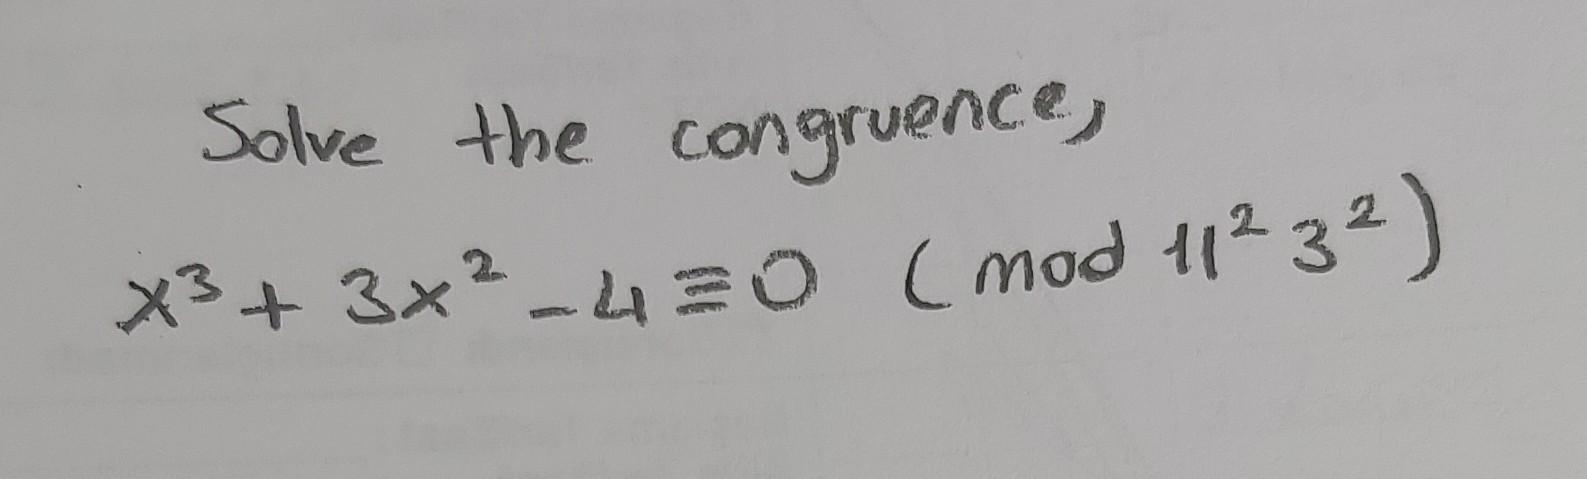 Solve the congruence,
x³ + 3x² - 4 ≡ 0 (mod 11² 3²)